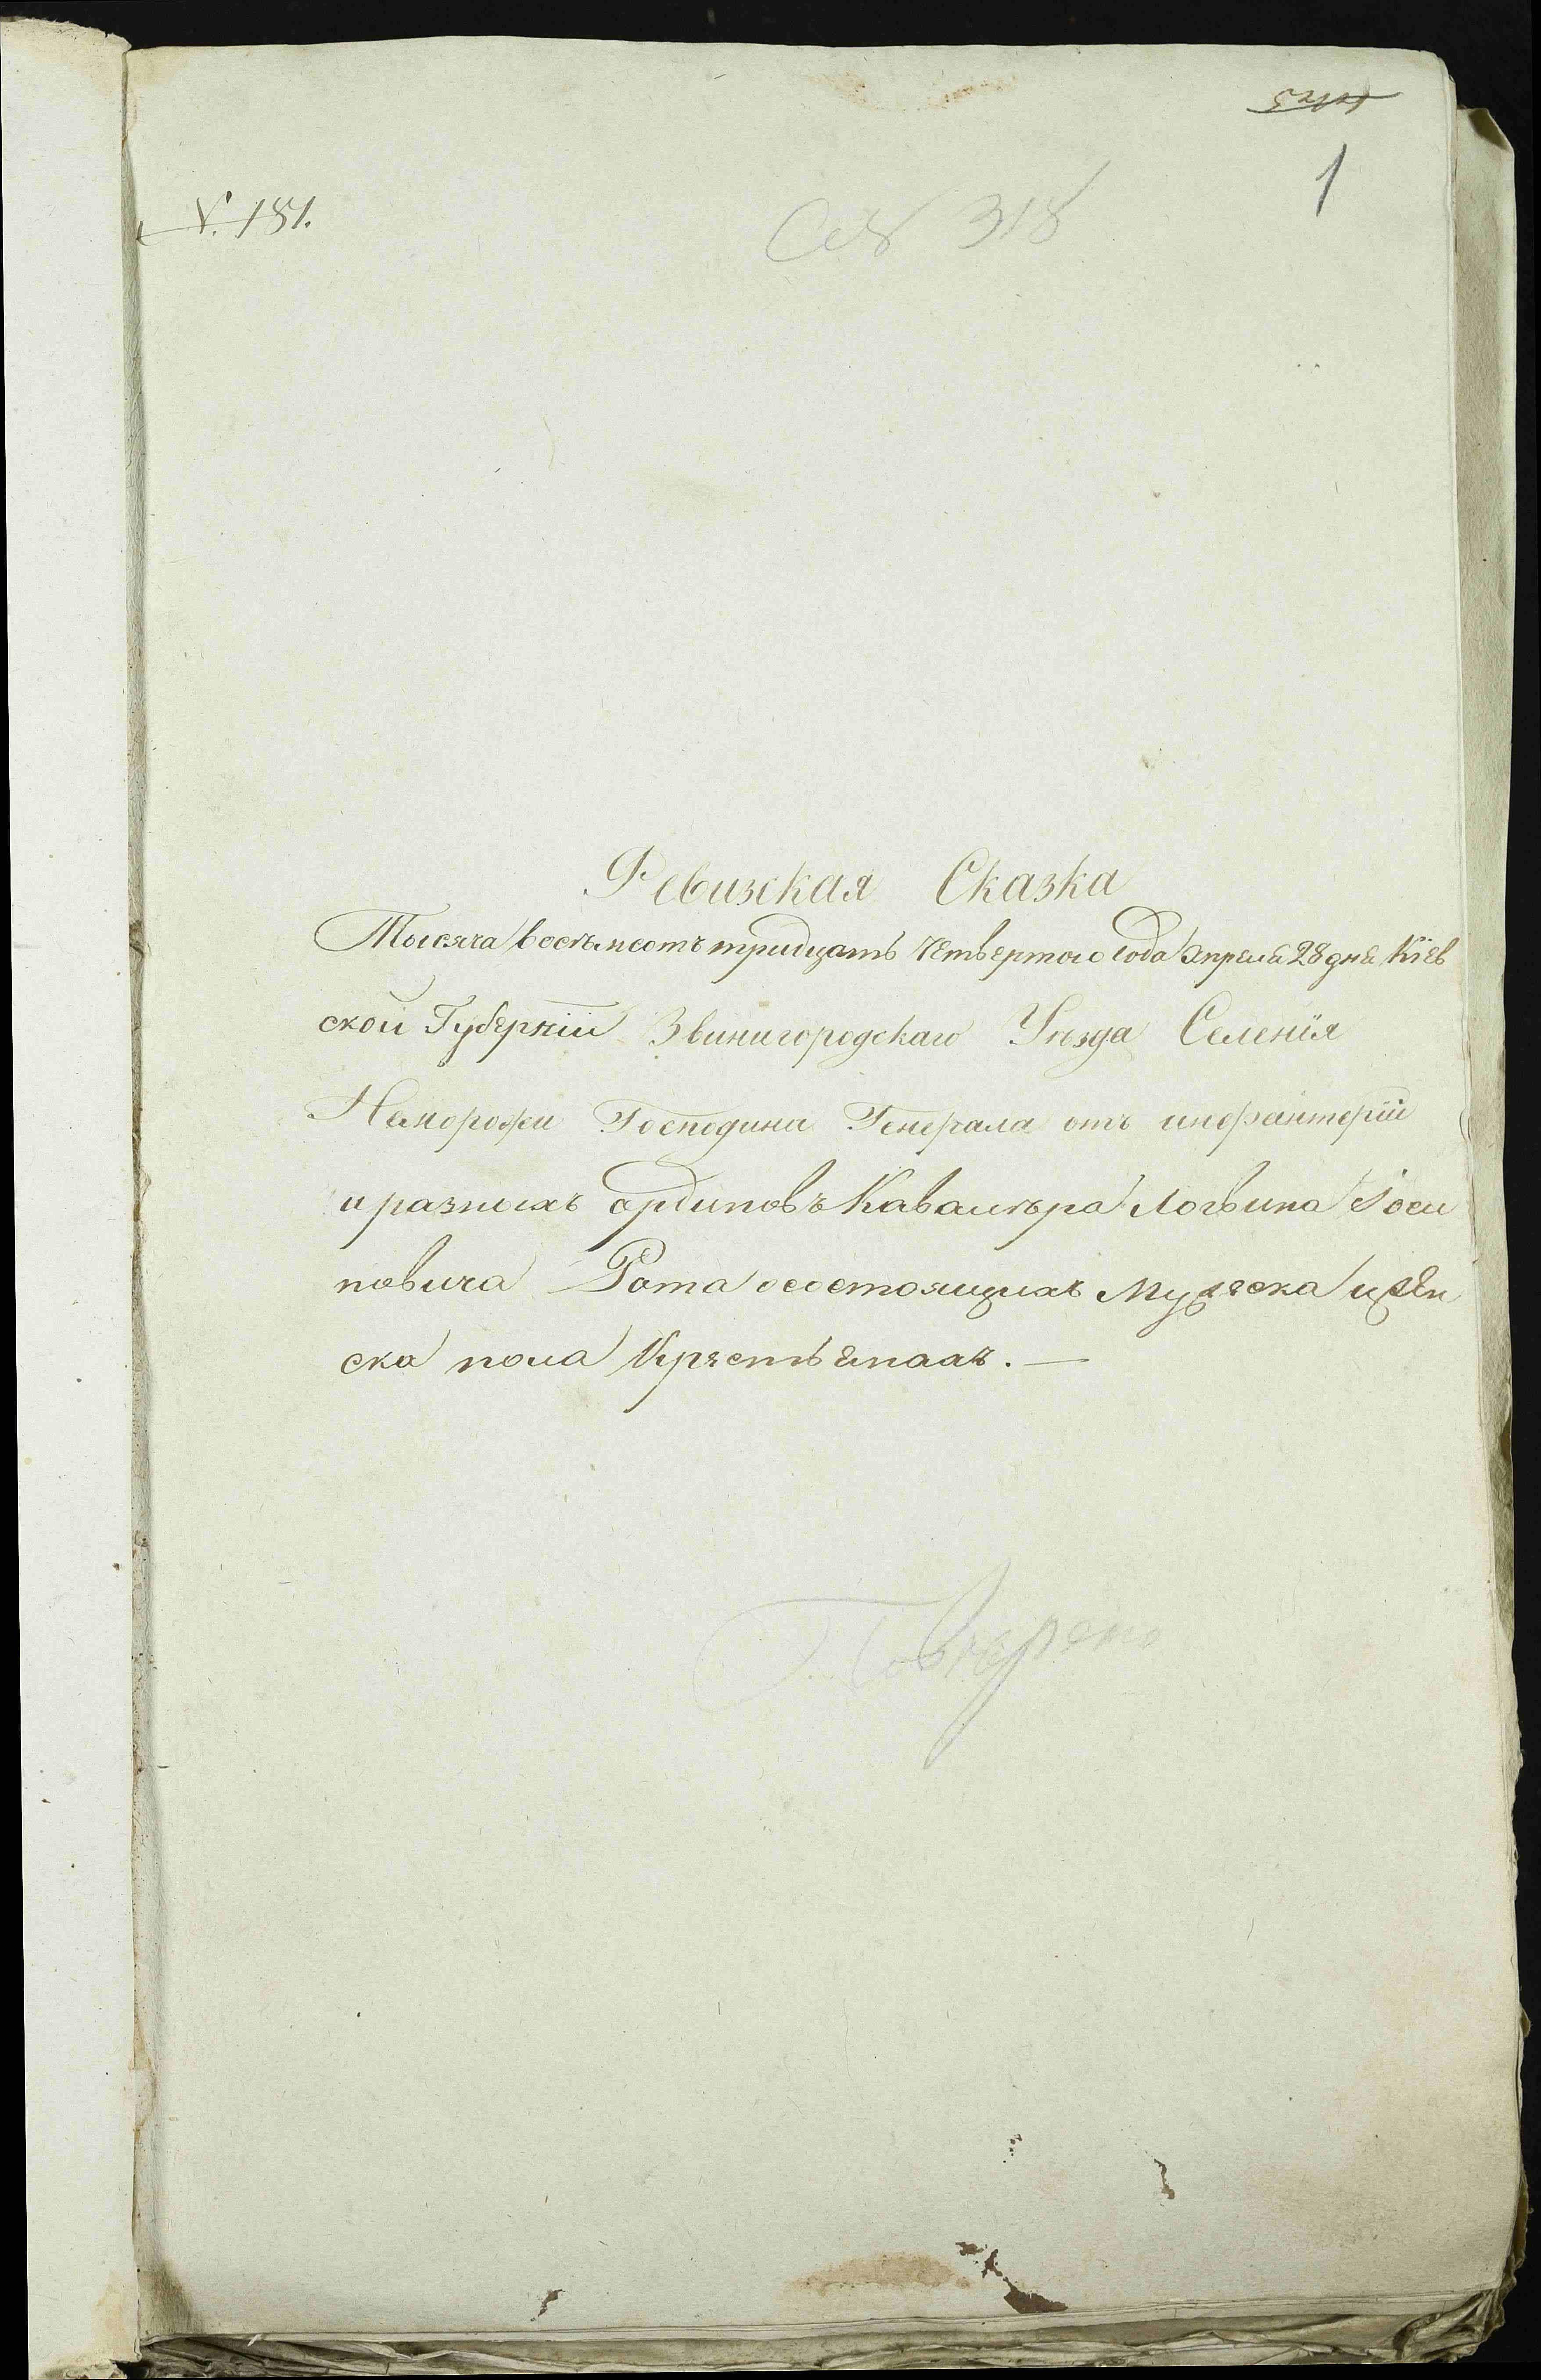 1
N. 151.
318
Ревизская Сказка
Тысяча восемъсотъ тридцать четвертого года апреля 28 дня Кіев
ской Губерніи Звинигородскаго Уѣзда Селенія
Неморожи Господина Генерала отъ инфантеріи
и разныхъ ординовъ Кавалѣра Логвина Іоси
повича Рота о состоящихъ мужеска и жен
ска пола Крестьянахъ. —
Повѣрено